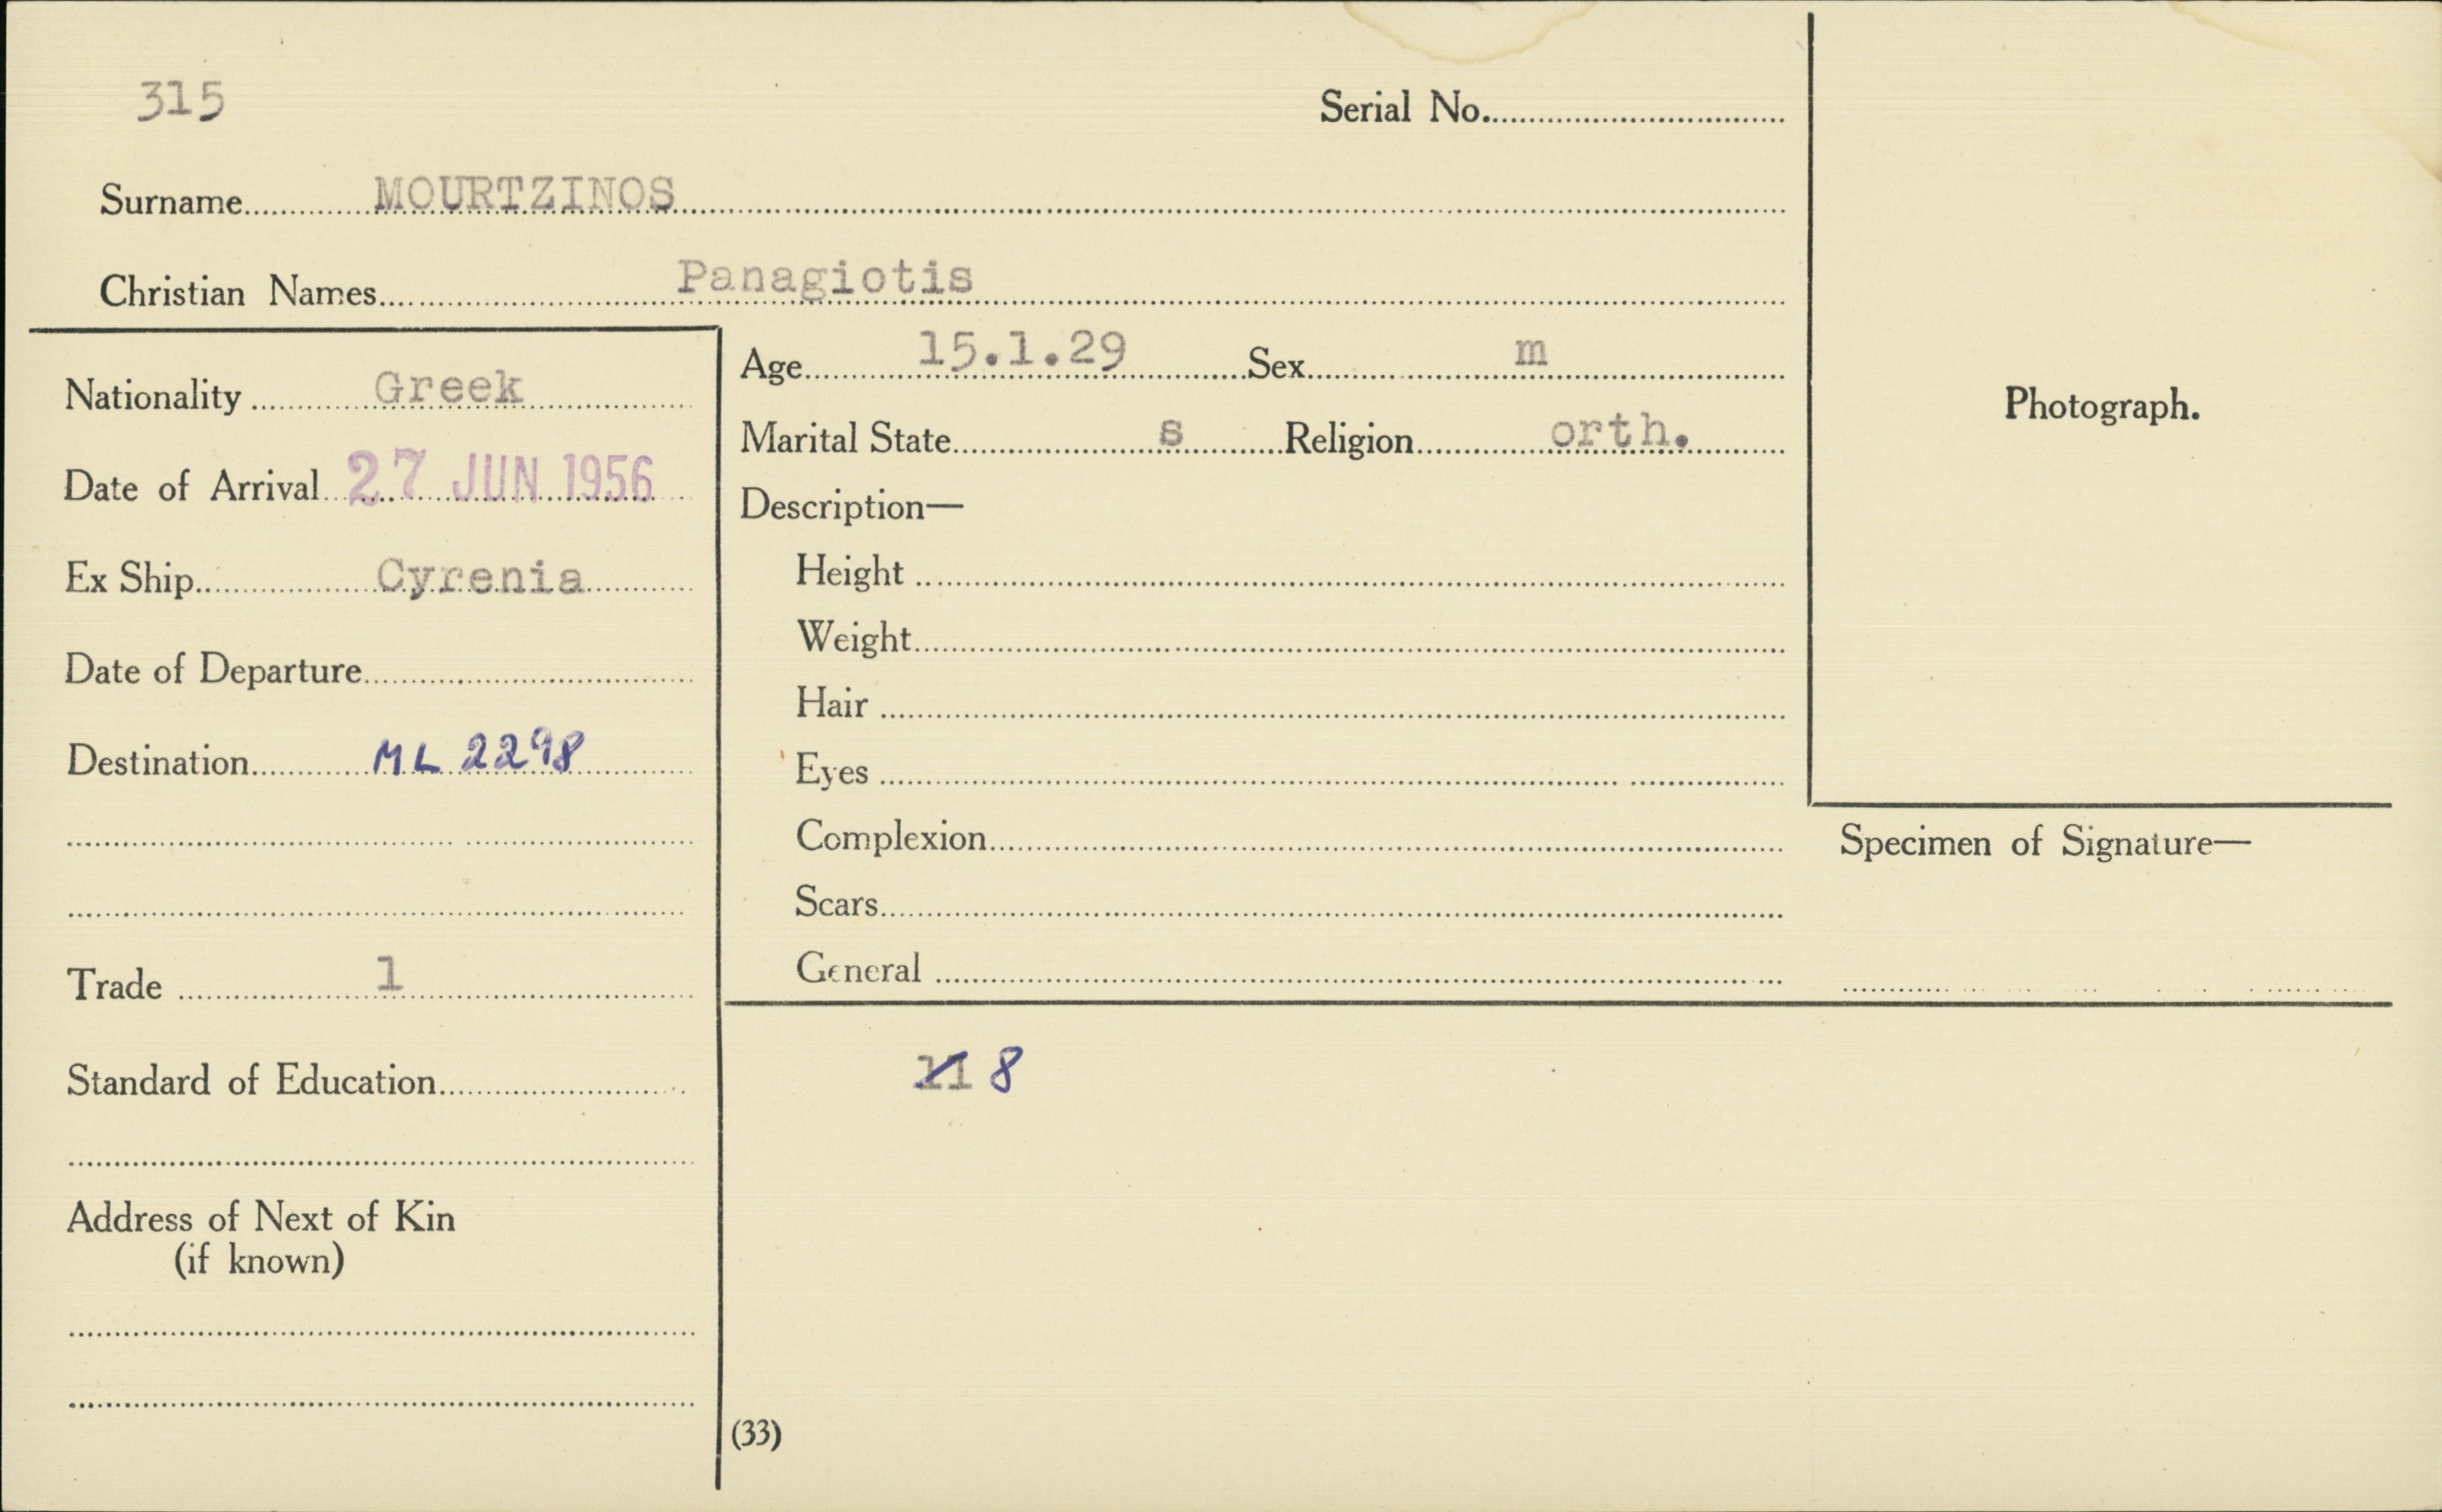 315
Serial No.
Surname MOURTZINOS
Christian Names Panagiotis
Nationality Greek
Date of Arrival 27 JUN 1956
Ex Ship Cyrenia
Date of Departure
Destination ML 2298
Trade 1
Standard of Education
Address of Next of Kin
(if known)
Age 15.1.29 Sex m
Marital State s Religion orth.
Description—
Height
Weight
Hair
Eyes
Complexion
Scars
General
Photograph.
Specimen of Signature—
11 8
(33)